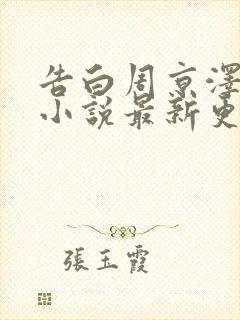 告白周京澤
小說最新更
張玉霞